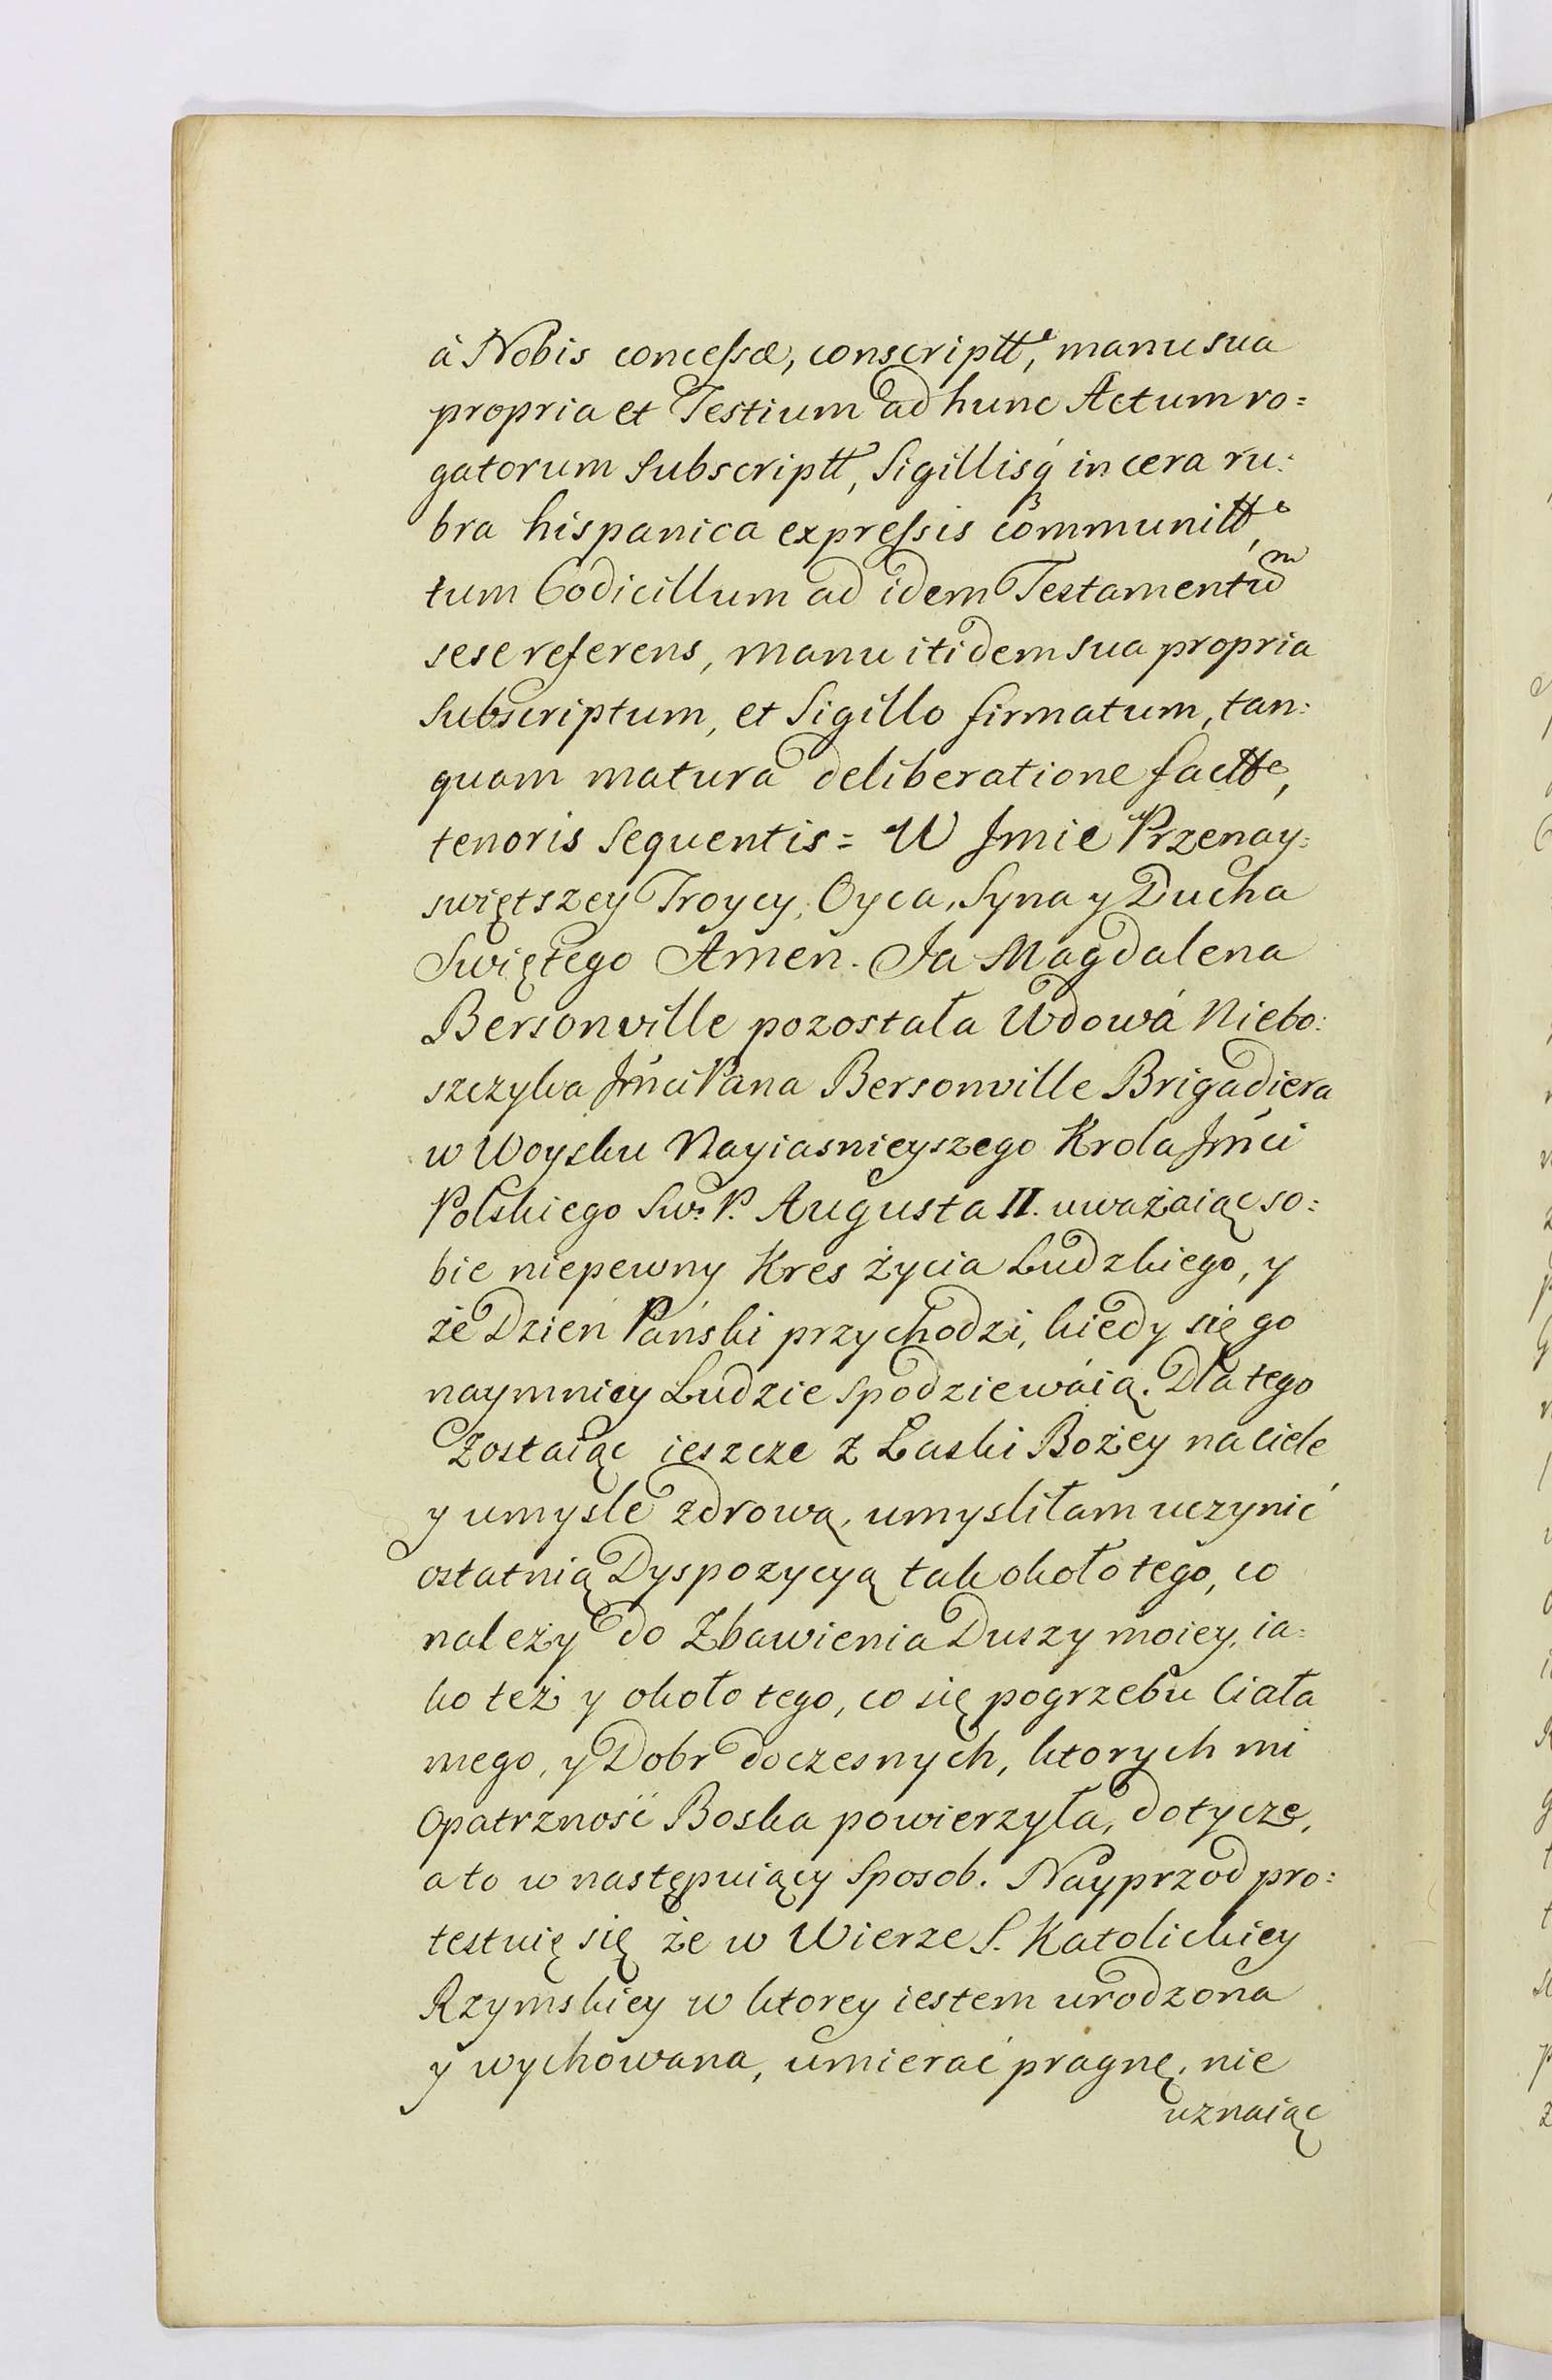 à Nobis concessæ, conscriptt<sup>e</sup>, manu sua
propria et Testium ad hunc Actum ro=
gatorum Subscriptt, Sigillisq́ in cera ru:
bra hispanica expressis communitt<sup>e</sup>,
tum Codicillum ad idem Testamentu<sup>m</sup>
sese referens, manu itidem sua propria
Subscriptum, et Sigillo firmatum, tan:
quam matura deliberatione factt<sup>e</sup>,
tenoris Sequentis = W Jmie Przenay=
swiętszey Troycy, Oyca, Syna y Ducha
Swiętego Amen. Ja Magdalena
Bersonville pozostała Wdowá Niebo:
szczyka Jmći Pana Bersonville Brigadiera
w Woysku Nayiasnieyszego Krola Jmći
Polskiego Sw: P. Augusta II. uważaiąc so:
bie niepewny Kres życia Ludzkiego, y
że Dzień Pański przychodzi, kiedy się go
naymniey Ludzie spodziewáią. Dla tego
Zostaiąc ieszcze z Łaski Bożey na ciele
y umysle zdrowa, umysliłam uczynić
ostatnią Dyspozycyą tak około tego, co
należy do Zbawienia Duszy moiey, ia=
ko też y około tego, co się pogrzebu Ciała
mego, y Dobr doczesnych, ktorych mi
Opatrzność Boska powierzyła, dotycze,
a to w następuiący Sposob. Nayprzod pro:
testuię się że w Wierze S. Katolickiey
Rzymskiey w ktorey iestem urodzona
y wychowana, umierać pragnę, nie
uznaiąc